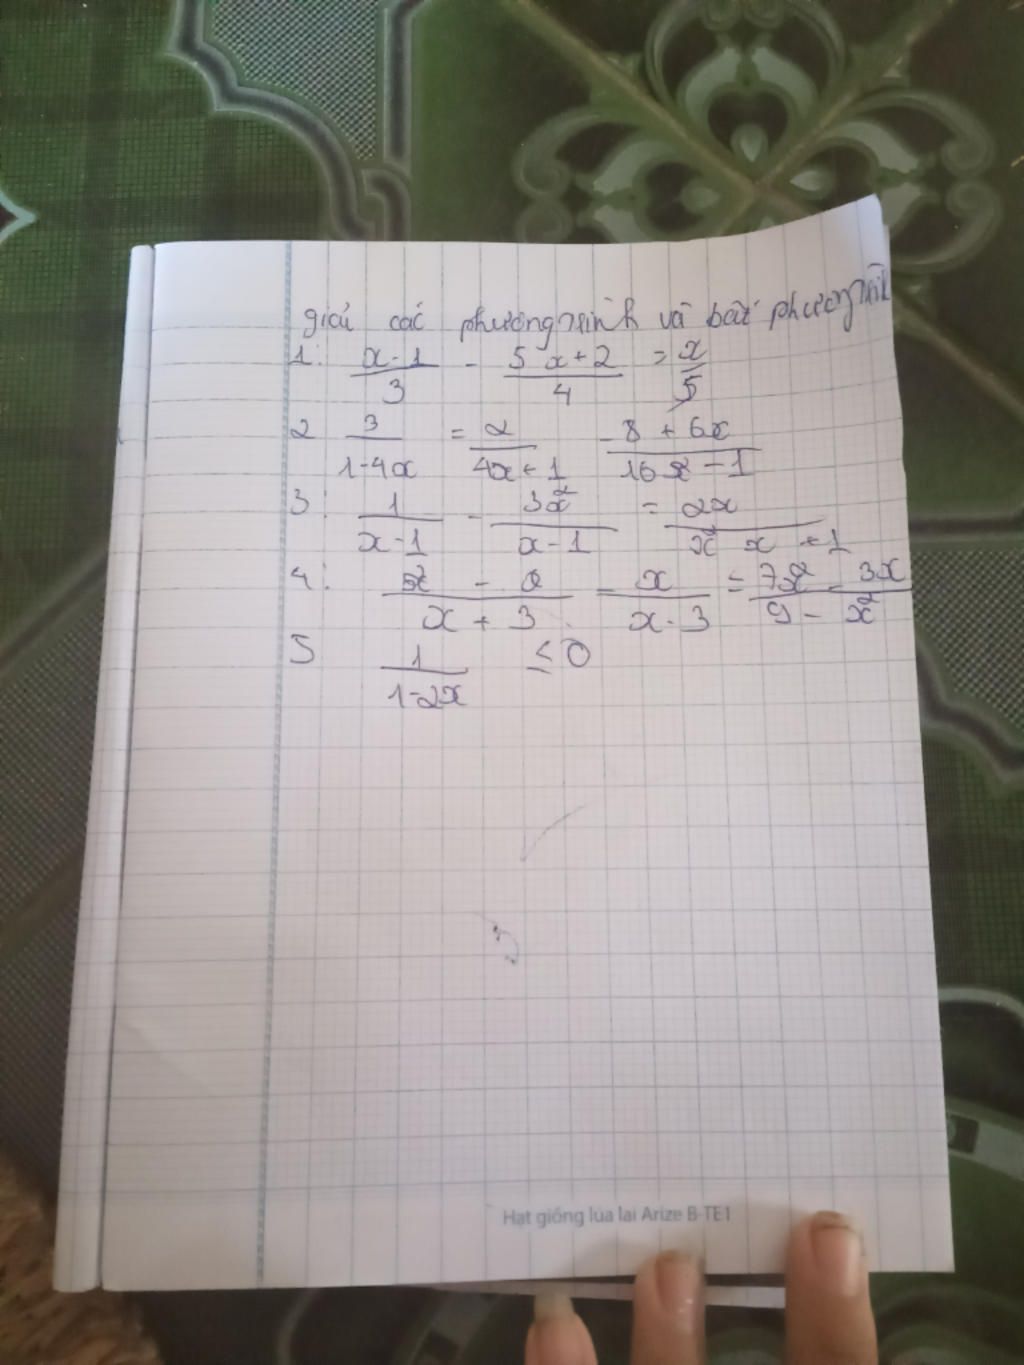 giải các phương trình và bất phương trình
1: x-1/3 - 5x+2/4 = x/5
2 3/1-4x = 2/4x+1 - 8+6x/16x²-1
3: 1/x-1 - 3x²/x-1 = 2x/x² x +1
4: x+3 - x/x-3 = 7x²-3x/9-x²
5 1/1-2x ≤0
Hạt giống lúa lai Arize B-TE1